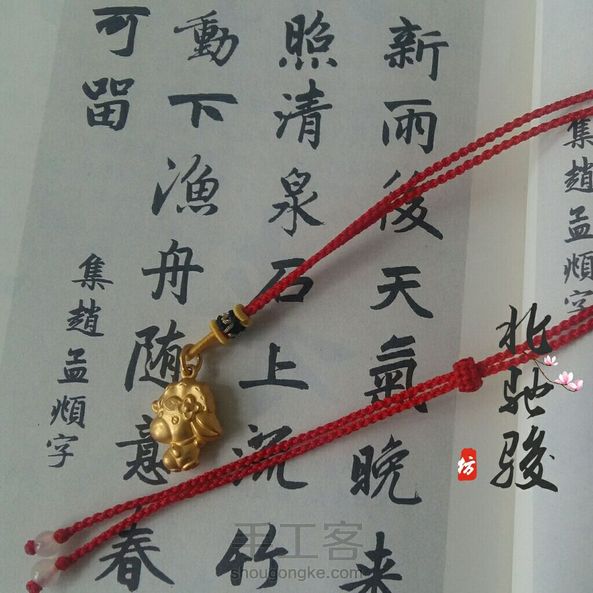 集趙孟頫字
新雨後天氣晚来
照清泉石上流竹
動下漁舟随意春
可留
集趙孟頫字
北驰骏
坊
手工客
shougongke.com